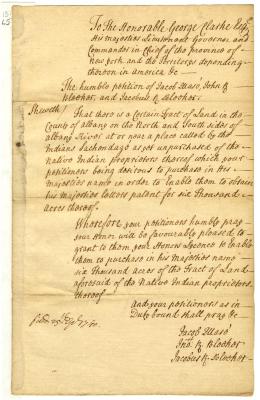 To The Honorable George Clarke Esqr
his majesties Lieutenant Governor and
Commander in Chief of the province of
New york and the Territorys depending
thereon in america &c
The humble petition of Jacob Mase, John R
Blecker, and Jacobus Blecker.
Sheweth!
That there is a Certain Tract of Land in the
County of albany on the North and South sides of
albany River at or near a place called by the
Indians as yet unpurchased of the
Native Indian proprietors thereof which your
petitioners being desirous to purchase in His
Majesties name in order to Enable them to obtain
his majesties letters patent for six Thousand
acres thereof.
Wherefore your petitioners humbly pray
your Honor will be favourably pleased to
grant to them your Honors Lycence to Enable
them to purchase in his Majesties name
six Thousand acres of the Tract of Land
aforesaid of the Native Indian proprietors
thereof
And your petitioners as in
Duty bound shall pray &c
Jacob Mase
Jno. R Blecker
Jacobus Blecker